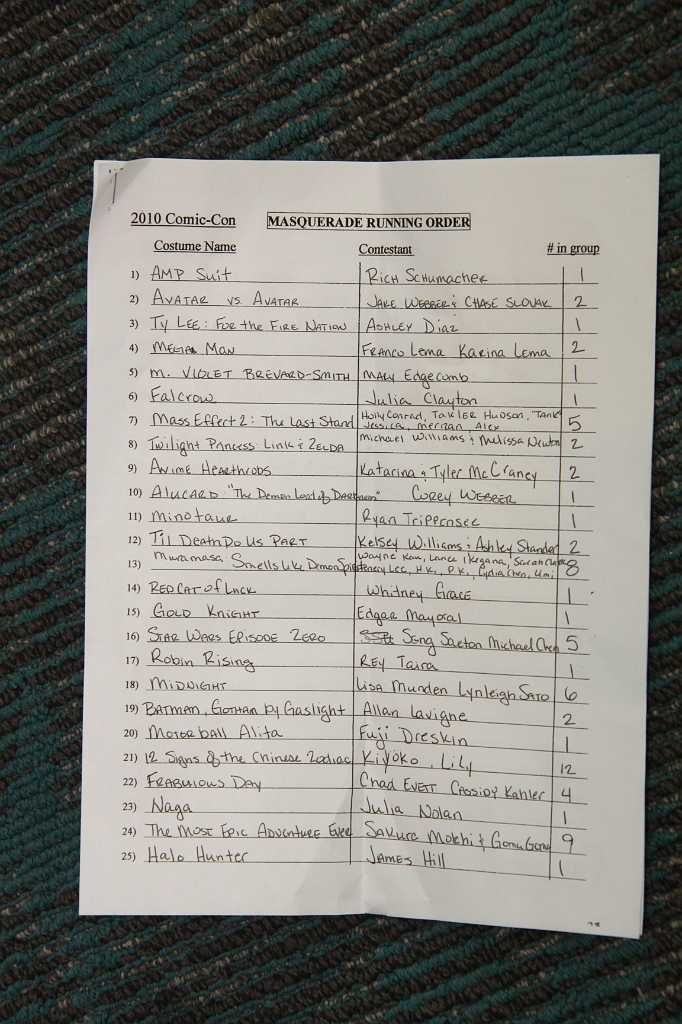 2010 Comic-Con MASQUERADE RUNNING ORDER
Costume Name Contestant # in group
1) AMP Suit Rich Schumacher 1
2) AVATAR VS. AVATAR JAKE WEBBER & CHASE SLOVAK 2
3) Ty Lee: For the Fire Nation Ashley Diaz 1
4) MEGA MAN Franco Lema Karina Lema 2
5) M. VIOLET BREVARD-SMITH MARY Edgecomb 1
6) Falcrow Julia Clayton 1
7) Mass Effect 2: The Last Stand Holly Conrad, Hudson, "Tank" Jessica, Alex 5
8) Twilight Princess: Link & ZELDA Michael Williams & Melissa Newton 2
9) Anime Hearthrobs Katarina & Tyler McCraney 2
10) ALUCARD: "The Demon Lord of Darkness" Corey WEBBER 1
11) Minotaur Ryan Trippensee 1
12) Til Death Do Us PART Kelsey Williams & Ashley Standar 2
13) Muramasa Smells Like Demon Wayne Lance H.K., P.K., Lydia Chen, 8
14) RED CAT of Luck Whitney Grace 1
15) GOLD KNIGHT Edgar Mayoral 1
16) STAR WARS EPISODE ZERO Seng Saeton Michael Chen 5
17) Robin Rising REY Taira 1
18) MIDNIGHT Lisa Munden Lynleigh SATO 6
19) BATMAN, GOTHAM by Gaslight Allan Lavigne 2
20) Motor ball Alita Fuji Dreskin 1
21) 12 Signs of the Chinese Zodiac Kiyoko, Lily 12
22) FRABULOUS DAY Chad EVETT CASSIDY Kahler 4
23) Naga Julia Nolan 1
24) The Most Epic Adventure Ever Sakura Mokhi & Gomu Gomu 9
25) Halo Hunter JAMES Hill 1